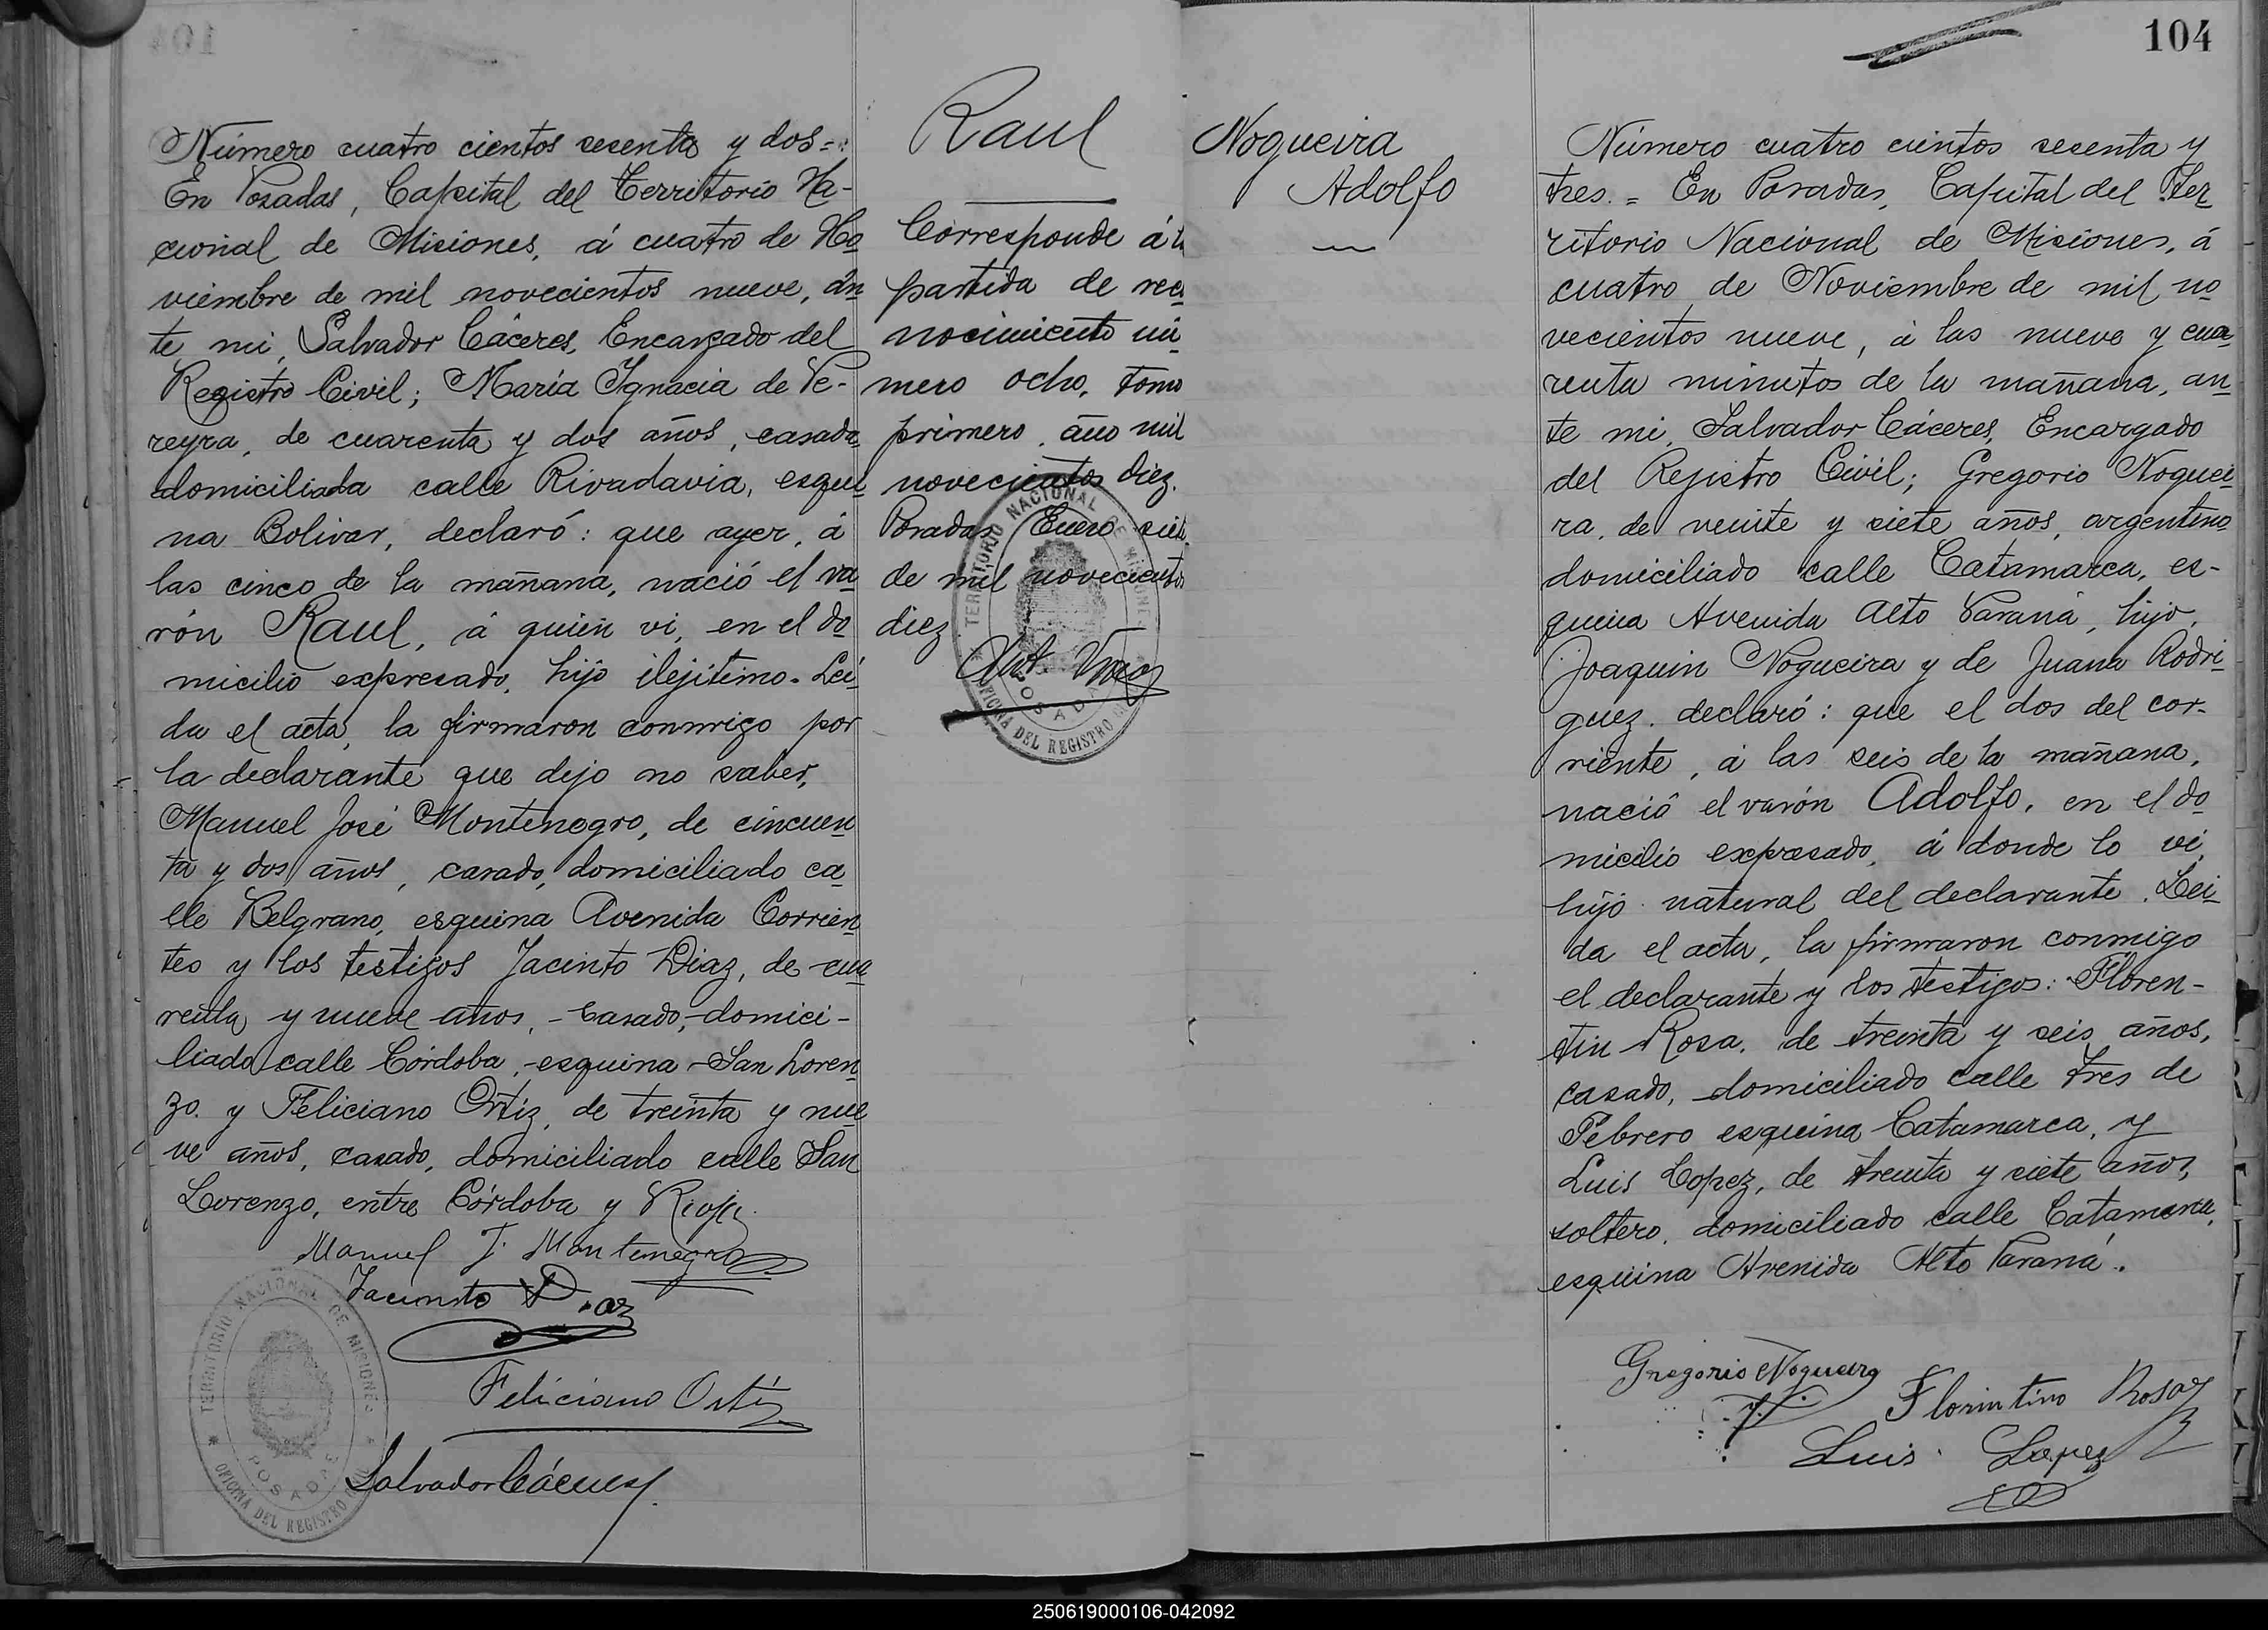 104
Número cuatro cientos sesenta y dos=
En Posadas, Capital del Territorio Na-
cional de Misiones, á cuatro de No
viembre de mil novecientos nueve, an
te mi, Salvador Cáceres, Encargado del
Registro Civil; María Ygnacia de Pe-
reyra, de cuarenta y dos años, casada
domiciliada calle Rivadavia, esqui
na Bolivar, declaró: que ayer, á
las cinco de la mañana, nació el va
rón Raul, á quien vi, en el do
micilio expresado, hijo ilejítimo. Léi
da el acta, la firmaron conmigo por
la declarante que dejo no saber,
Manuel José Montenegro, de cincuen
ta y dos años, casado, domiciliado ca
lle Belgrano, esquina Avenida Corrien
tes y los testigos Jacinto Diaz, de cua
renta y nueve años, - casado, - domici-
liado calle Córdoba, - esquina - San Loren
zo. y Feliciano Ortiz, de treinta y nue
ve años, casado, domiciliado calle San
Lorenzo, entre Córdoba y Rioja.
Manuel J. Montenegro
Jacinto Diaz
Feliciano Ortiz
Salvador Cáceres
TERRITORIO NACIONAL DE MISIONES
POSADAS
OFICINA DEL REGISTRO
Raul
Corresponde á la
partida de reco
nocimiento nú
mero ocho, tomo
primero, año mil
novecientos diez.
Posadas Enero siete
de mil novecientos
diez
TERRITORIO NACIONAL DE MISIONES
POSADAS
OFICINA DEL REGISTRO
Nogueira
Adolfo
Número cuatro cientos sesenta y
tres. = En Posadas, Capital del Ter
ritorio Nacional de Misiones, á
cuatro de Noviembre de mil no
vecientos nueve, á las nueve y cua
renta minutos de la mañana, an
te mi, Salvador Cáceres, Encargado
del Registro Civil; Gregorio Noguei
ra, de veinte y siete años, argentino
domiciliado calle Catamarca, es-
quina Avenida Alto Paraná, hijo,
Joaquin Nogueira y de Juana Rodri
guez. declaró: que el dos del cor-
riente, á las seis de la mañana,
nació el varón Adolfo, en el do
micilio expresado, á donde lo vi,
hijo natural del declarante. Lei
da el acta, la firmaron conmigo
el declarante y los testigos: Floren-
tin Rosa, de treinta y seis años,
casado, domiciliado calle Tres de
Febrero esquina Catamarca, y
Luis Lopez, de treinta y siete años,
soltero, domiciliado calle Catamarca,
esquina Avenida Alto Paraná.
Gregorio Nogueira
Florintino Rosa
Luis Lopez
250619000106-042092